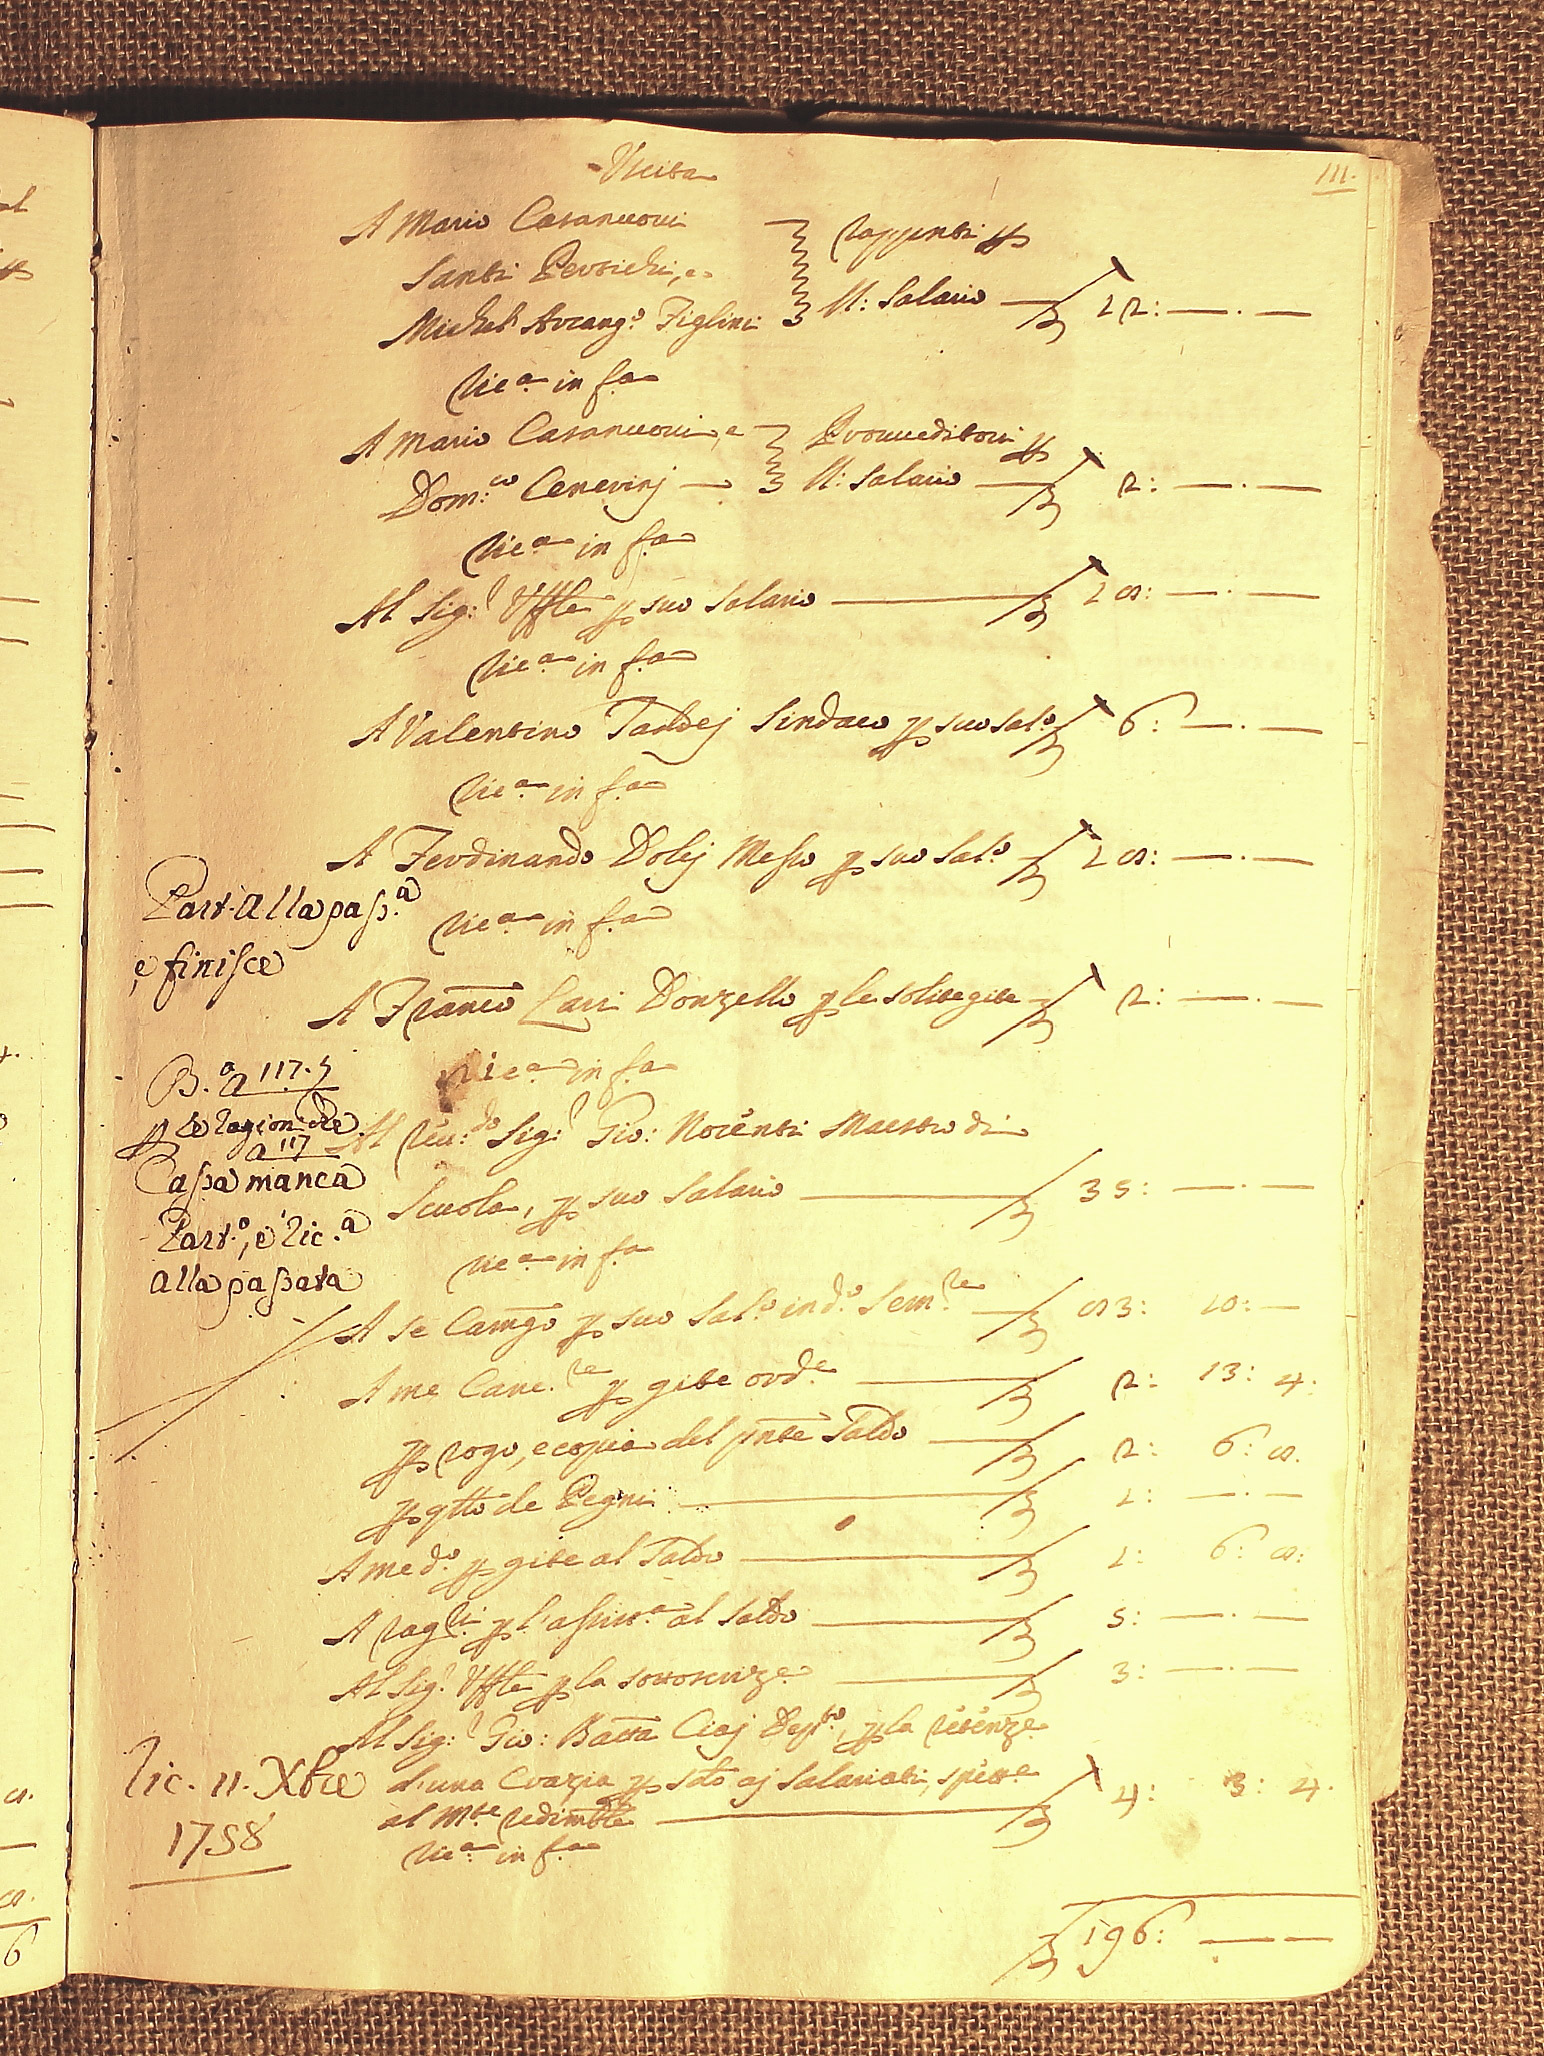 Uscita
111.
A Mario Casanuovi
Santi Pertichi, e
Michel Arcang.o Figlini
rappnti p
II: Salario — 12: —.—
Ric.a in f.a
A Mario Casanuovi, e
Dom:co Cenerinj —
Provveditori p
II: Salario — 2: —.—
Ric.a in f.a
Al Sig:r Uffle p suo Salario — 28: —.—
Ric.a in f.a
A Valentino Taddej Sindaco p suo Sal.o 6: —.—
Ric.a in f.a
A Ferdinando Dolej Messo p suo Sal.o — 28: —.—
Part. alla pass.a
e finisce
Ric.a in f.a
A Franco Lari Donzello p le solite gite — 2: —.—
Ric.a in f.a
B.o a 117. 5
p le ragioni
a 117
Cassa manca
Part.o, e Ric.a
alla passata
Al Reu:do Sig:r Gio: Norenti Maestro di
Scuola, p suo Salario — 35: —.—
Ric.a in f.a
A Se Camgo p suo Sal.o in d.o Sem.re — 83: 10: —
A me Canc.re p gite ord.e — 2: 13: 4:
p rogo, e copia del pnte Saldo — 2: 6: 8.
p de Pegni — 1: —.—
A me d.o p gite al Saldo — 1: 6: 8:
A rag.ri p l'assist.a al Saldo — 5: —.—
Al Sig.r Uffle p la — 3: —.—
Al Sig:r Gio: Batta Ciaj p la
Ric. 11. Xbre
1758
d'una Crazia p aj Salariati,
al M.te redimble — 4: 3: 4.
Ric.a in f.a
196: — —